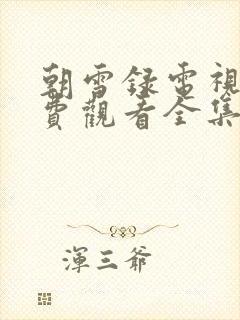 朝雪録電視
費觀看全集
渾三爺